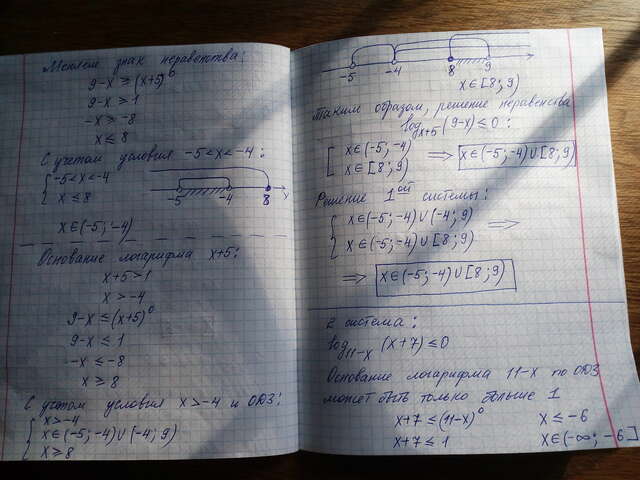 Меняем знак неравенства:
9-x ≥ (x+5)⁰
9-x ≥ 1
-x ≥ -8
x ≤ 8
С учетом условия -5<x<-4:
{ -5<x<-4
x ≤ 8
-5 -4 8 x
x∈(-5; -4)
Основание логарифма x+5:
x+5>1
x>-4
9-x ≤ (x+5)⁰
9-x ≤ 1
-x ≤ -8
x ≥ 8
С учетом условия x>-4 и ОДЗ:
{ x>-4
x∈(-5; -4)∪(-4; 9)
x ≥ 8
-5 -4 8 9
x∈[8; 9)
Таким образом, решение неравенства
log_{x+5}(9-x) ≤ 0:
[ x∈(-5; -4)
x∈[8; 9) ⟹ x∈(-5; -4)∪[8; 9)
Решение 1ой системы:
{ x∈(-5; -4)∪(-4; 9)
x∈(-5; -4)∪[8; 9) ⟹
⟹ x∈(-5; -4)∪[8; 9)
2 система:
log_{11-x}(x+7) ≤ 0
Основание логарифма 11-x по ОДЗ
может быть только больше 1
x+7 ≤ (11-x)⁰ x ≤ -6
x+7 ≤ 1 x∈(-∞; -6]